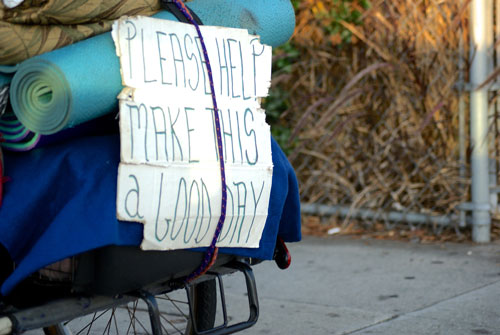 PLEASE HELP
MAKE THIS
a GOOD DAY